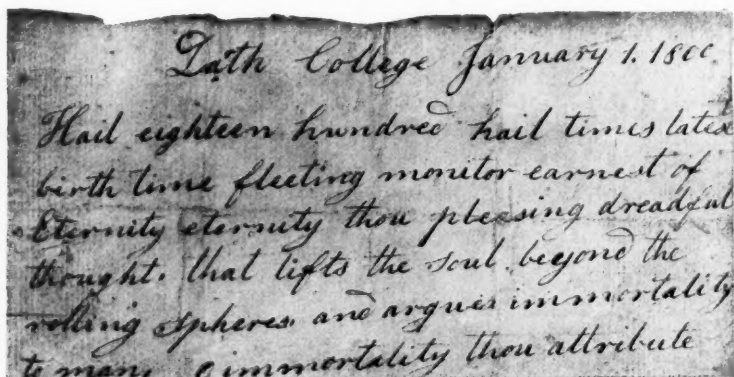 Dath College January 1. 1800
Hail eighteen hundred hail times latest
birth time fleeting monitor earnest of
Eternity eternity thou pleasing dreadful
thought. that lifts the soul beyond the
rolling spheres. and argues immortality
to man, o immortality thou attribute